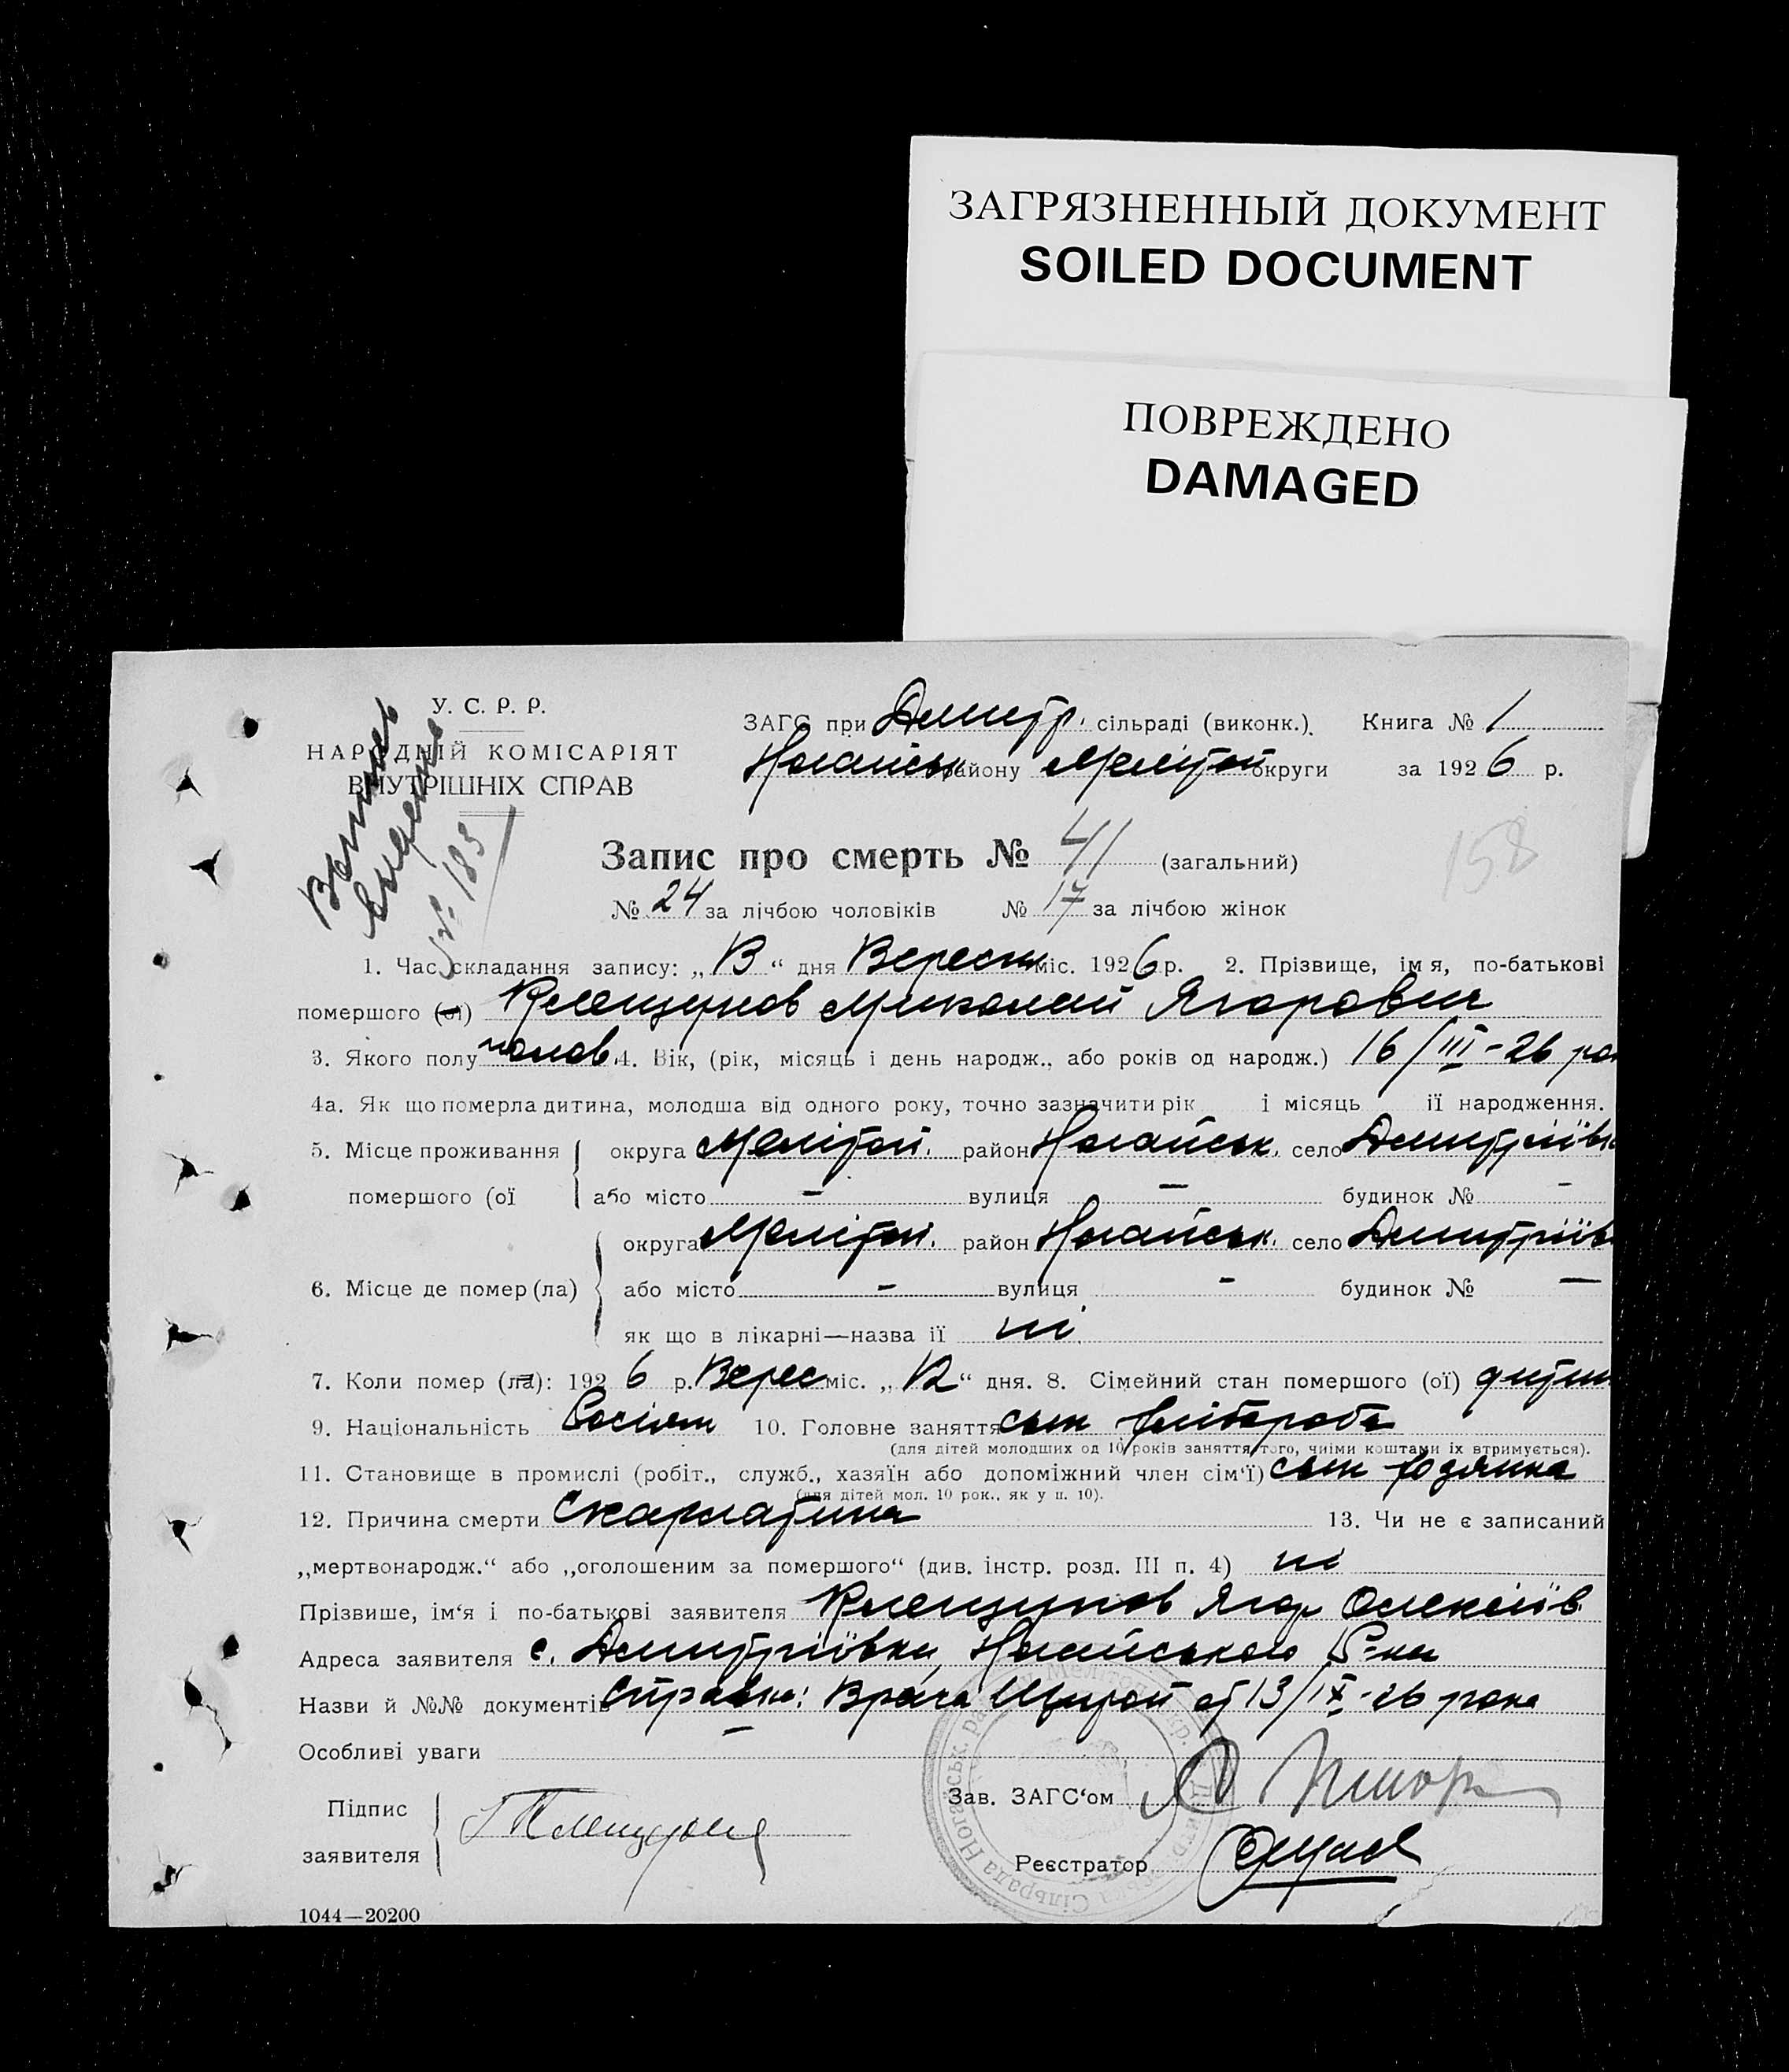 ЗАГРЯЗНЕННЫЙ ДОКУМЕНТ
SOILED DOCUMENT
ПОВРЕЖДЕНО
DAMAGED
У. С. Р. Р.
НАРОДНІЙ КОМІСАРІЯТ
ВНУТРІШНІХ СПРАВ
№ 183
ЗАГС при Дмитр. сільраді (виконк.). Книга № 1
Ногайськ району Мелітоп округи за 1926 р.
Запис про смерть № 41 (загальний)
158
№ 24 за лічбою чоловіків № 17 за лічбою жінок
1. Час складання запису: „13“ дня Вересня міс. 1926 р. 2. Прізвище, імя, по-батькові
помершого (ої) Клещунов Миколай Ягорович
3. Якого полу чолов. 4. Вік, (рік, місяць і день народж., або років од народж.) 16/III-26 рок
4а. Як що померла дитина, молодша від одного року, точно зазначити рік і місяць її народження.
5. Місце проживання округа Мелітоп. район Ногайськ. село Дмитріївка
помершого (ої або місто – вулиця – будинок № –
округа Мелітоп. район Ногайськ. село Дмитріїв
6. Місце де помер (ла) або місто – вулиця – будинок № –
як що в лікарні—назва її ні
7. Коли помер (ла): 1926 р. Верес міс. „12“ дня. 8. Сімейний стан помершого (ої) дитин
9. Національність Росіян 10. Головне заняття син хлібороба
(для дітей молодших од 10 років заняття того, чиїми коштами їх втримується).
11. Становище в промислі (робіт., служб., хазяїн або допоміжний член сім‘ї) син
(для дітей мол. 10 рок., як у п. 10).
12. Причина смерти Скарлатина 13. Чи не є записаний
„мертвонародж.“ або „оголошеним за помершого“ (див. інстр. розд. III п. 4) ні
Прізвише, ім‘я і по-батькові заявителя Клещунов Ягор Олексіїв.
Адреса заявителя с. Дмитріївка, Ногайського Р-на
Назви й №№ документів Справка: Врача от 13/IX-26 рока
Особливі уваги –
Підпис
заявителя
Зав. ЗАГС‘ом
Реєстратор
1044—20200